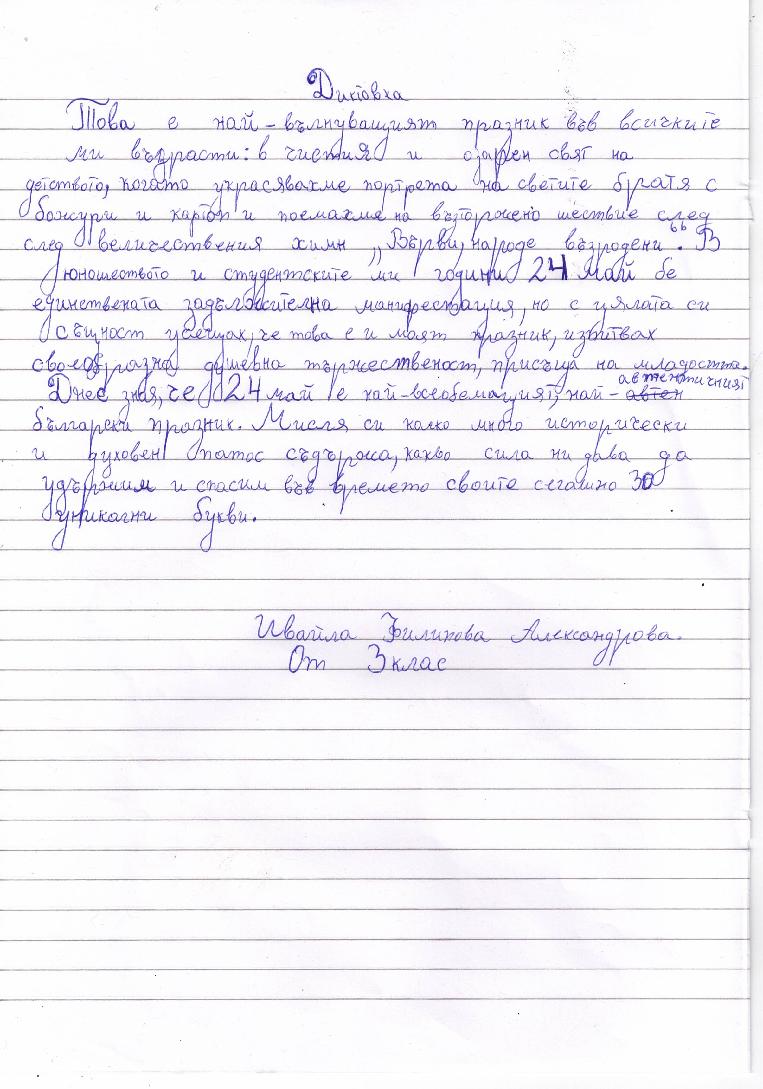 Диктовка
Това е най-вълнуващият празник във всичките
ми възрасти: в чистия и озарен свят на
детството, когато украсявахме портрета на светите братя с
божури и карton и поемахме на възторжено шествие след
след величествения химн „Върви, народе възродени“. В
юношеството и студентските ми години 24 май бе
единствената задължителна манифестация, но с цялата си
същност усещах, че това е и моят празник, изпитвах
своеобразна душевна тържественост, присъща на младостта.
Днес зная, че 24 май е най-всеобемащият, най-автентичният
български празник. Мисля си колко много исторически
и духовен патос съдържа, какво сила ни дава да
удържим и спасим във времето своите сегашно 30
уникални букви.
Ивайла Филипова Александрова.
От 3 клас